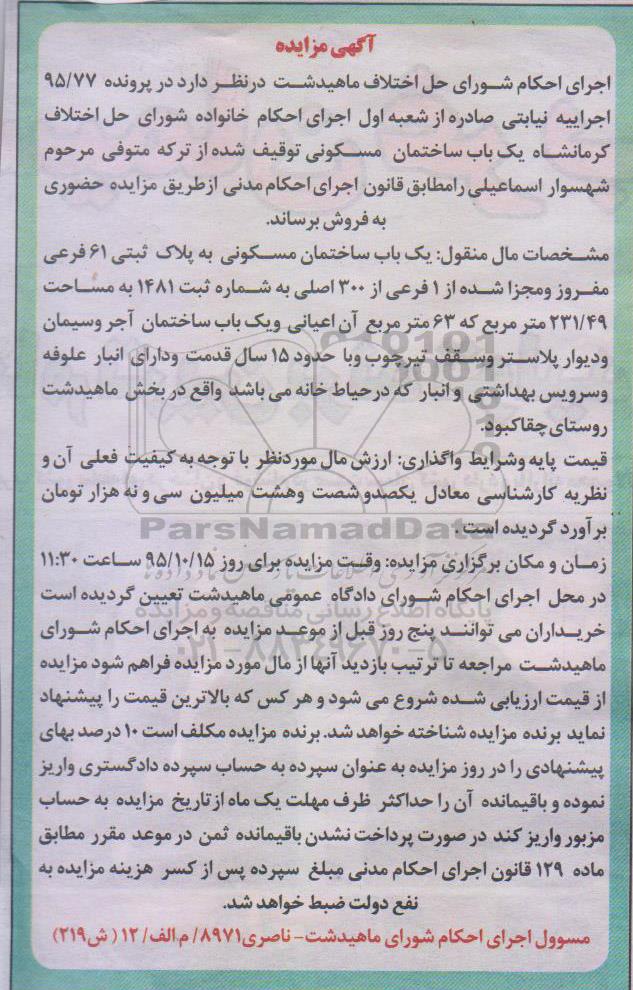 آگهی مزایده
اجرای احکام شورای حل اختلاف ماهیدشت درنظر دارد در پرونده ۹۵/۷۷
اجراییه نیابتی صادره از شعبه اول اجرای احکام خانواده شورای حل اختلاف
کرمانشاه یک باب ساختمان مسکونی توقیف شده از ترکه متوفی مرحوم
شهسوار اسماعیلی رامطابق قانون اجرای احکام مدنی ازطریق مزایده حضوری
به فروش برساند.
مشخصات مال منقول: یک باب ساختمان مسکونی به پلاک ثبتی ۶۱ فرعی
مفروز ومجزا شده از ۱ فرعی از ۳۰۰ اصلی به شماره ثبت ۱۴۸۱ به مساحت
۲۳۱/۴۹ متر مربع که ۶۳ متر مربع آن اعیانی ویک باب ساختمان آجر وسیمان
ودیوار پلاستر وسقف تیرچوب وبا حدود ۱۵ سال قدمت ودارای انبار علوفه
وسرویس بهداشتی وانبار که درحیاط خانه می باشد واقع در بخش ماهیدشت
روستای چقاکبود.
قیمت پایه وشرایط واگذاری: ارزش مال موردنظر با توجه به کیفیت فعلی آن و
نظریه کارشناسی معادل یکصدو شصت وهشت میلیون سی و نه هزار تومان
برآورد گردیده است.
ParsNamadData
زمان و مکان برگزاری مزایده: وقت مزایده برای روز ۹۵/۱۰/۱۵ ساعت ۱۱:۳۰
در محل اجرای احکام شورای دادگاه عمومی ماهیدشت تعیین گردیده است
پایگاه اطلاع رسانی مناقصه و مزایده
خریداران می توانند پنج روز قبل از موعد مزایده به اجرای احکام شورای
۰۲۱-۸۸۳۴۹۶۷۰-۵
ماهیدشت مراجعه تا ترتیب بازدید آنها از مال مورد مزایده فراهم شود مزایده
از قیمت ارزیابی شده شروع می شود و هر کس که بالاترین قیمت را پیشنهاد
نماید برنده مزایده شناخته خواهد شد. برنده مزایده مکلف است ۱۰ درصد بهای
پیشنهادی را در روز مزایده به عنوان سپرده به حساب سپرده دادگستری واریز
نموده و باقیمانده آن را حداکثر ظرف مهلت یک ماه از تاریخ مزایده به حساب
مزبور واریز کند در صورت پرداخت نشدن باقیمانده ثمن در موعد مقرر مطابق
ماده ۱۲۹ قانون اجرای احکام مدنی مبلغ سپرده پس از کسر هزینه مزایده به
نفع دولت ضبط خواهد شد.
مسوول اجرای احکام شورای ماهیدشت- ناصری۸۹۷۱/ م.الف/ ۱۲ ( ش۲۱۹)